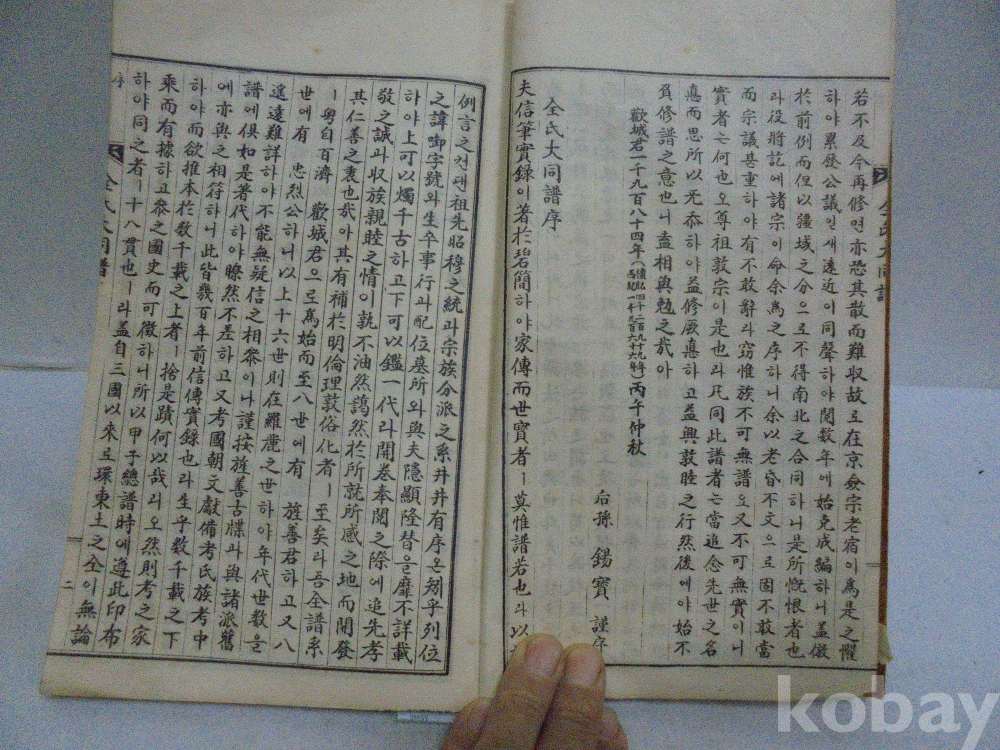 若不及今再修면亦恐其散而難収故로在京僉宗老宿이爲是之懼
하야累發公議인새遠近이同聲하야閱數年에始克成編하니盖倣
於前例而但以疆域之分으로不得南北之合同하니是所慨恨者也
라役將訖에諸宗이命余爲之序하니余以老昏不文으로固不敢當
而宗議甚重하야有不敢辭라窃惟族不可無譜오又不可無實이니
實者는何也오尊祖敦宗이是也라凡同此譜者는當追念先世之名
悳而思所以无忝하야益修厥悳하고益興敦睦之行然後에야始不
負修譜之意也니盍相與勉之哉아
歡城君一千九百八十四年 丙午仲秋
后孫 錫寶 謹序
全氏大同譜序
夫信筆實録이著於碧簡하야家傳而世寶者ㅣ莫惟譜若也라以
例言之컨댄祖先昭穆之統과宗族分派之系井井有序온矧乎列位
之諱啣字號와生卒事行과配位墓所와與夫隱顯隆替을靡不詳載
하야上可以燭千古하고下可以鑑一代라開卷奉閱之際에追先孝
敬之誠과収族親睦之情이孰不油然藹然於所就所感之地而開發
其仁善之衷也哉아其有補於明倫理敦俗化者ㅣ至矣라吾全譜系
ㅣ粤自百濟 歡城君으로爲始而至八世에有 旌善君하고又八
世에有 忠烈公하니以上十六世則在羅麗之世하야年代世數을
遙遠難詳하야不能無疑信之相參이나謹按旌善古牒과與諸派舊
譜에俱如是著代하야瞭然不差하고又考國朝文獻備考氏族考中
에亦與之相符하니此皆幾百年前信傳實錄也라生乎數千載之下
하야而欲推本於數千載之上者ㅣ捨是蹟何以哉리오然則考之家
乘而有據하고參之國史而可徵하니所以甲子總譜時에遵此印布
하야同之者ㅣ十八貫也ㅣ라盖自三國以來로環東土之全이無論
全氏大同譜
序
二
kobay